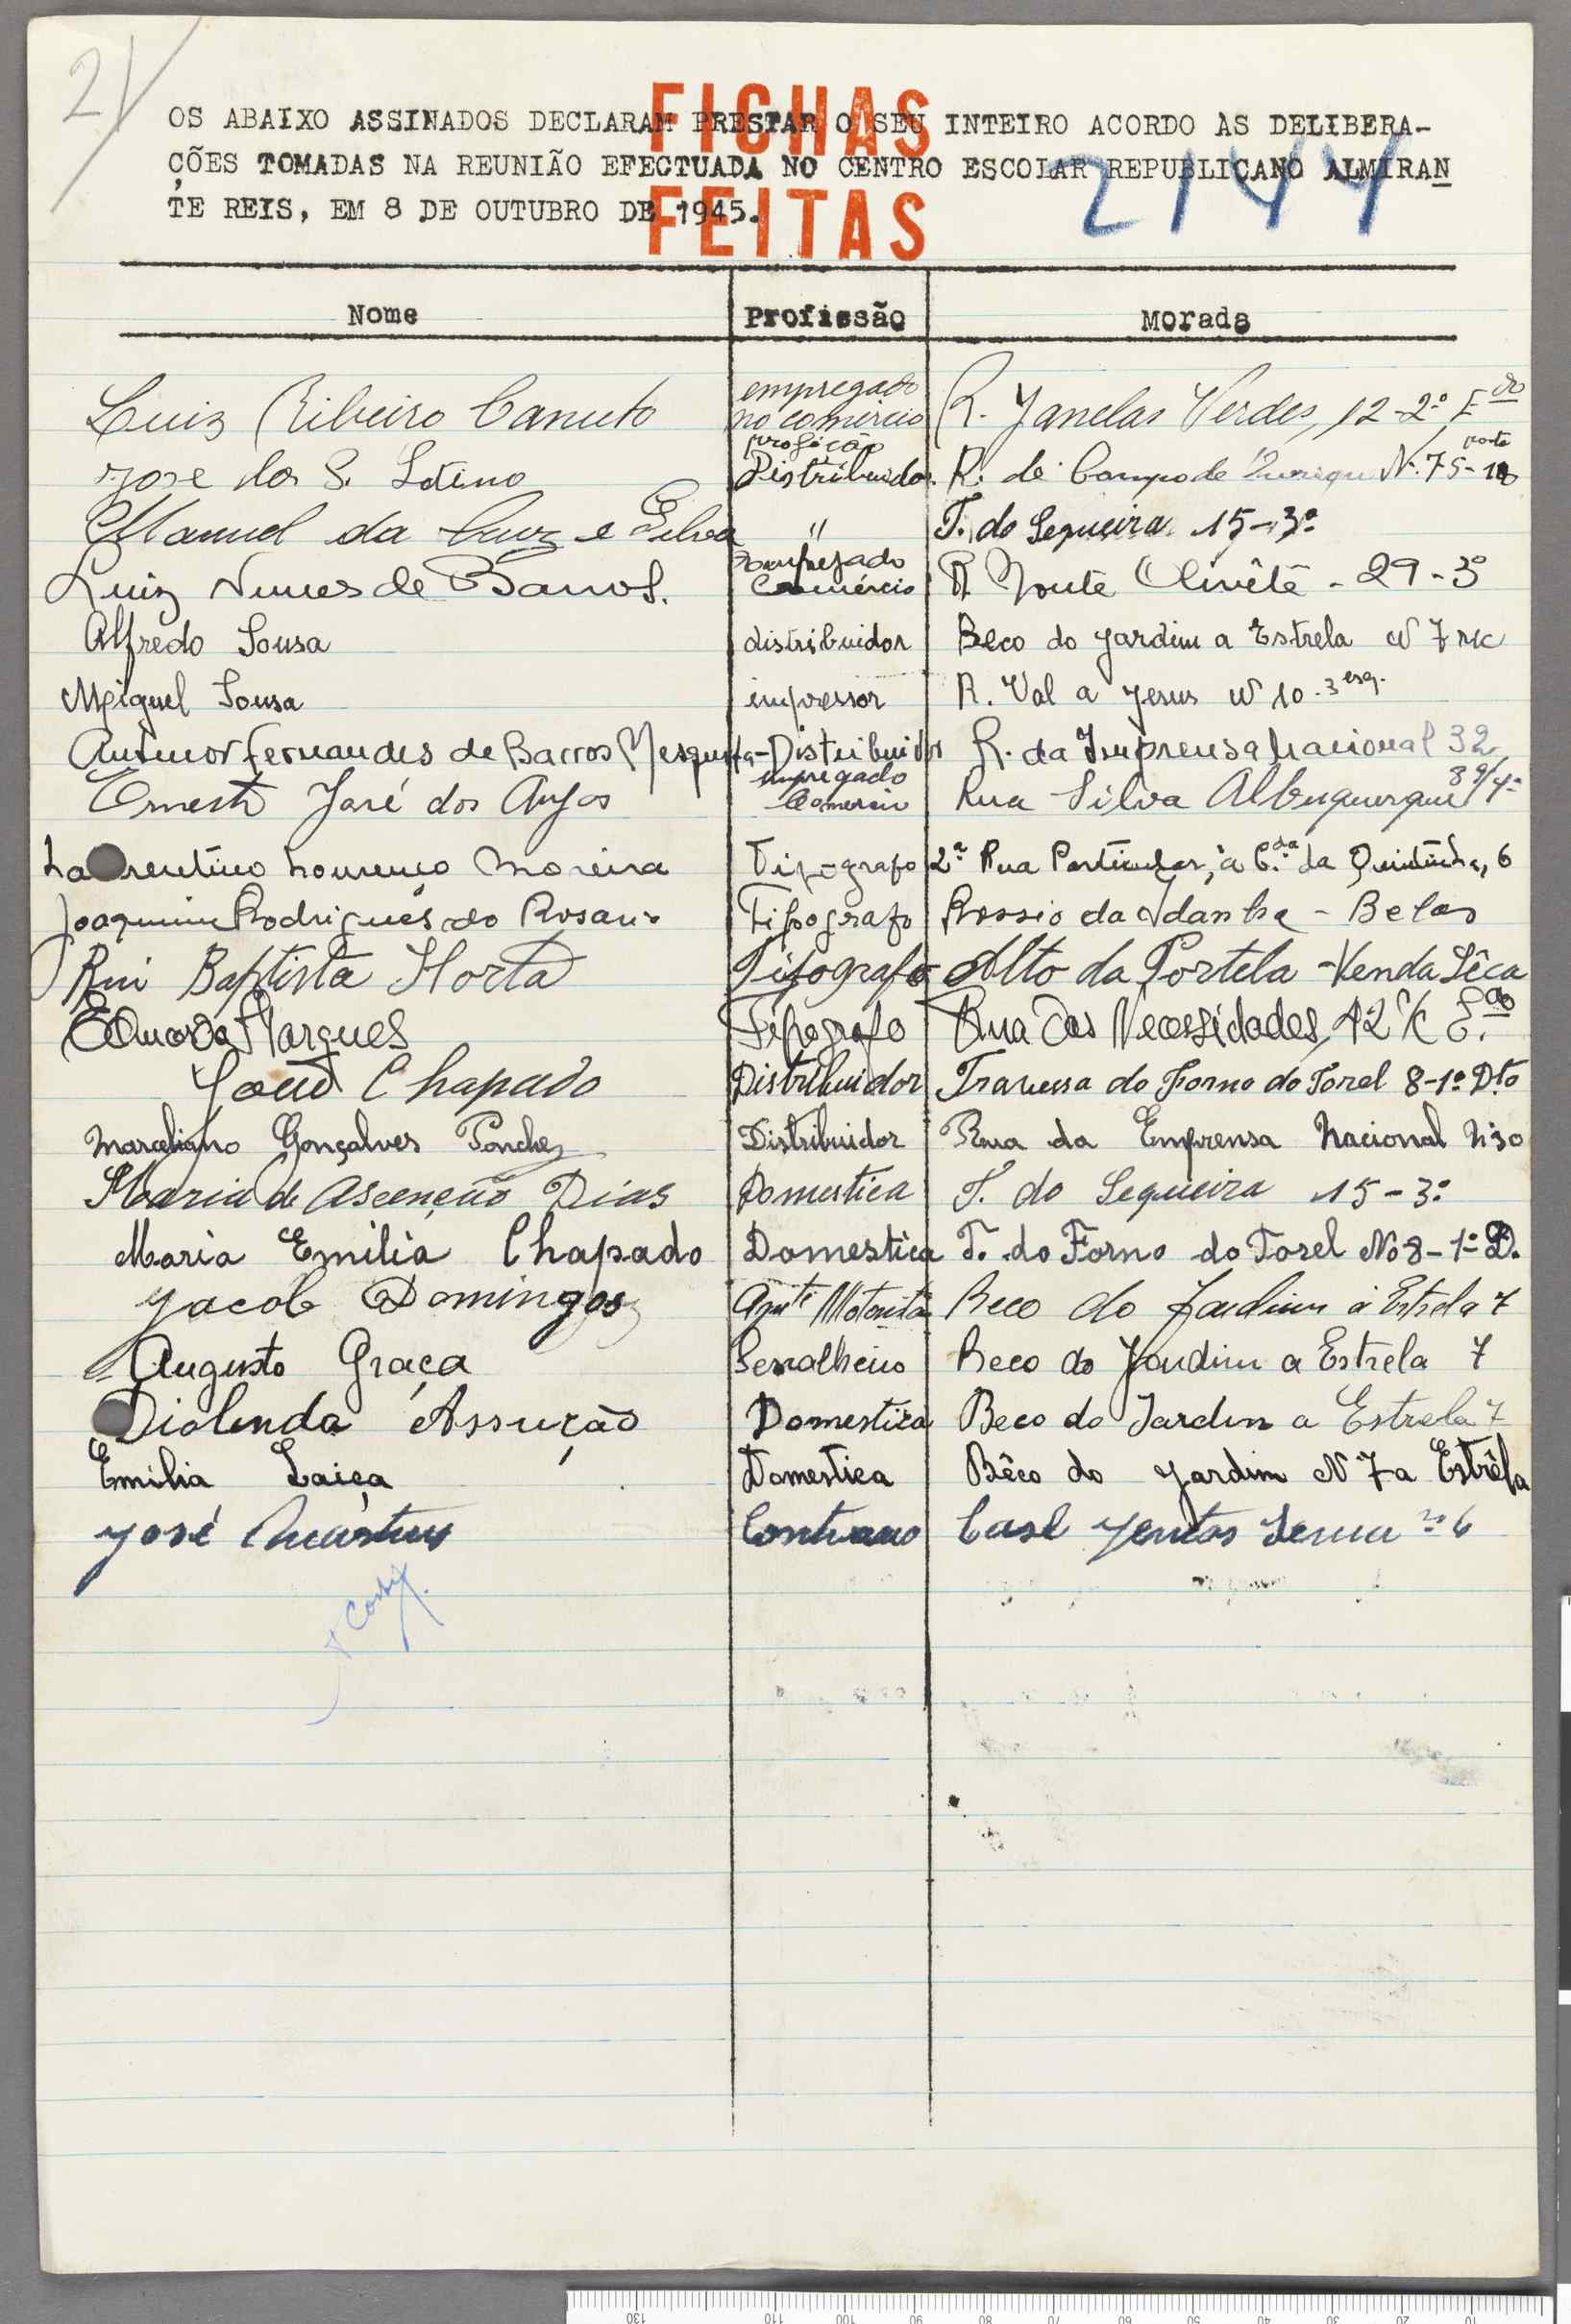 21
FICHAS
FEITAS
2144
OS ABAIXO ASSINADOS DECLARAM PRESTAR O SEU INTEIRO ACORDO AS DELIBERA-
ÇÕES TOMADAS NA REUNIÃO EFECTUADA NO CENTRO ESCOLAR REPUBLICANO ALMIRAN
TE REIS, EM 8 DE OUTUBRO DE 1945.
Nome Profissão Morada
Luiz Ribeiro Canuto empregado no comércio R. Janelas Verdes, 12-2º E do
José dos S. Latino profição Distribuidor R. de Campo de Ourique Nº 75- porta 18
Manuel da Cruz e Silva " T. do Sequeira 15-3º
Luiz Nunes de Barros. empregado Comércio R Monte Olivête - 29-3º
Alfredo Sousa distribuidor Beco do Jardim a Estrela Nº 7 r/c
Miguel Sousa impressor R. Val a Jesus Nº 10-3 esq.
Antenor Fernandes de Barros Mesquita - Distribuidor R. da Imprensa Nacional 32
Ernesto José dos Anjos empregado Comercio Rua Silva Albuquerque 89/4º
Laurentino Lourenço Moreira Tipografo 2ª Rua Particular, à C.da da Quintinha, 6
Joaquim Rodrigues do Rosario Tipografo Rossio da Idanha - Belas
Rui Baptista Horta Tipografo Alto da Portela - Venda Sêca
Eduardo Marques Tipografo Rua das Necessidades, 42 r/c E.do
João Chapado Distribuidor Travessa do Forno do Torel 8-1º Dto
Marceliano Gonçalves Ponchez Distribuidor Rua da Emprensa Nacional Nº 30
Maria de Ascenção Dias Domestica T. do Sequeira 15-3º
Maria Emilia Chapado Domestica T. do Forno do Torel No 8-1º D.
Jacob Domingos Beco do Jardim à Estrela 7
Augusto Graça Serralheiro Beco do Jardim a Estrela 7
Diolinda Assução Domestica Beco do Jardin a Estrela 7
Emilia Laiça Domestica Bêco do Jardim Nº 7 a Estrêla
José Martins Casl nº 6